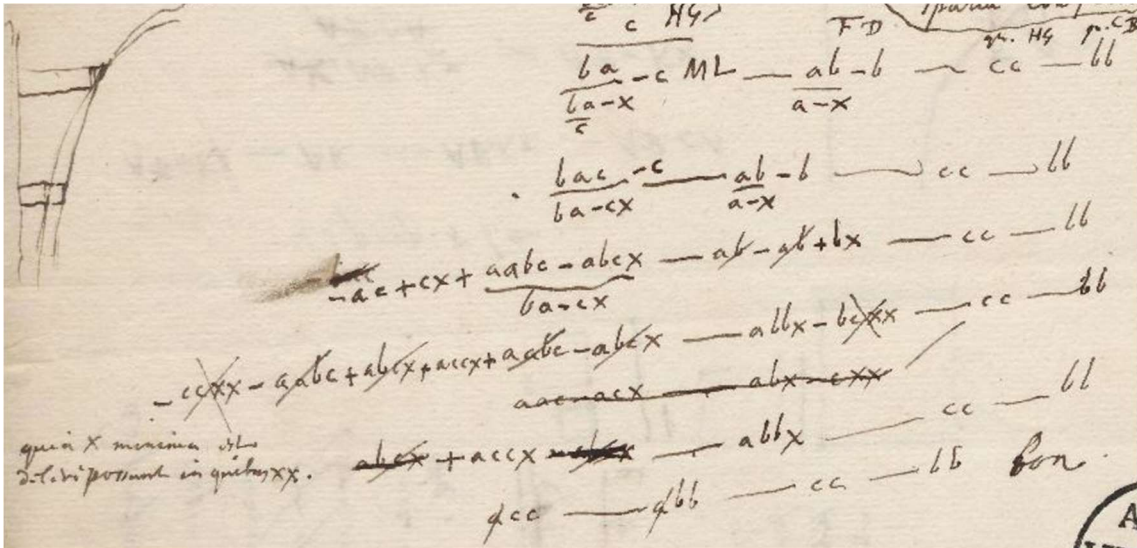 c HG
F D
qu. HG qu. CB
ba/(ba/c - x) - c ML — ab/(a-x) - b — cc — bb
bac/(ba-cx) - c — ab/(a-x) - b — cc — bb
-ac + cx + (aabc - abcx)/(ba-cx) — ab - ab + bx — cc — bb
- ccxx - aabc + abcx + accx + aabc - abcx — abbx - bcxx — cc — bb
aac-acx — abx-cxx
quia x minima
deleri possunt in quibus xx.
abcx + accx - abcx — abbx — cc — bb
acc — abb — cc — bb bon.
A